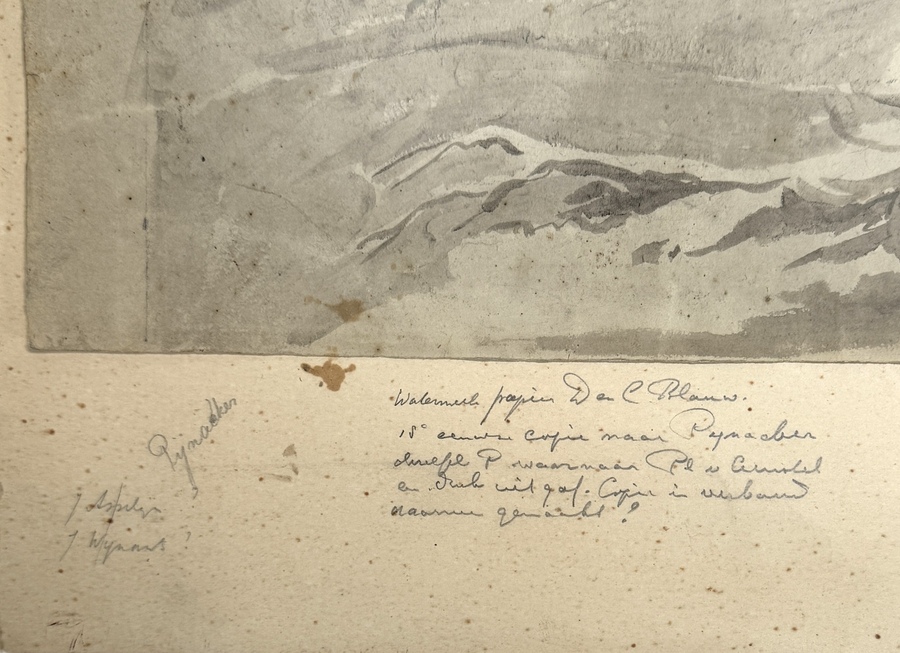 Pijnacker
J Asselyn
J Wijnants ?
Watermerk papier D en C Blauw.
18e eeuwse copie naar Pynacker
P waarnaar Pl v Amstel
en uit gaf. Copie in verband
daarmee gemaakt ?